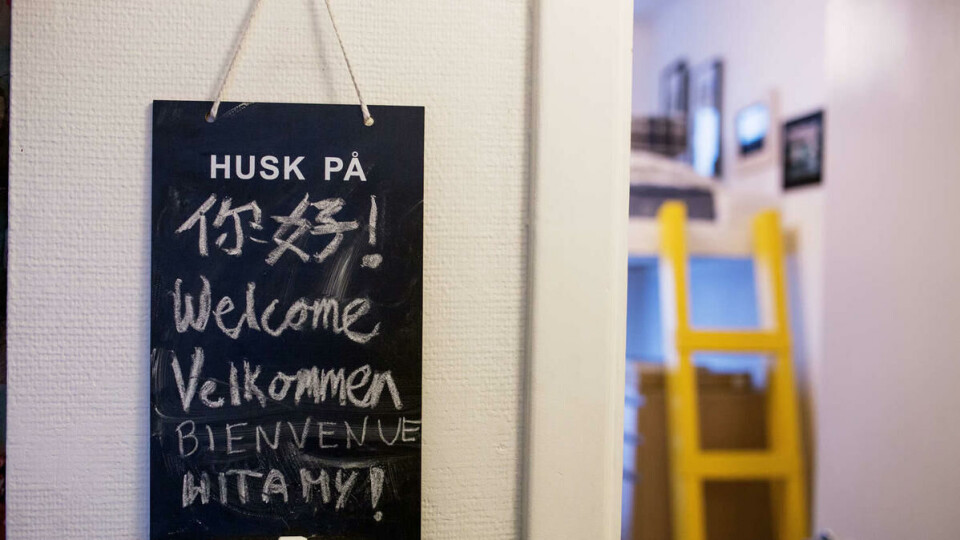 HUSK PÅ
你好!
Welcome
Velkommen
BIENVENUE
WITAMY!